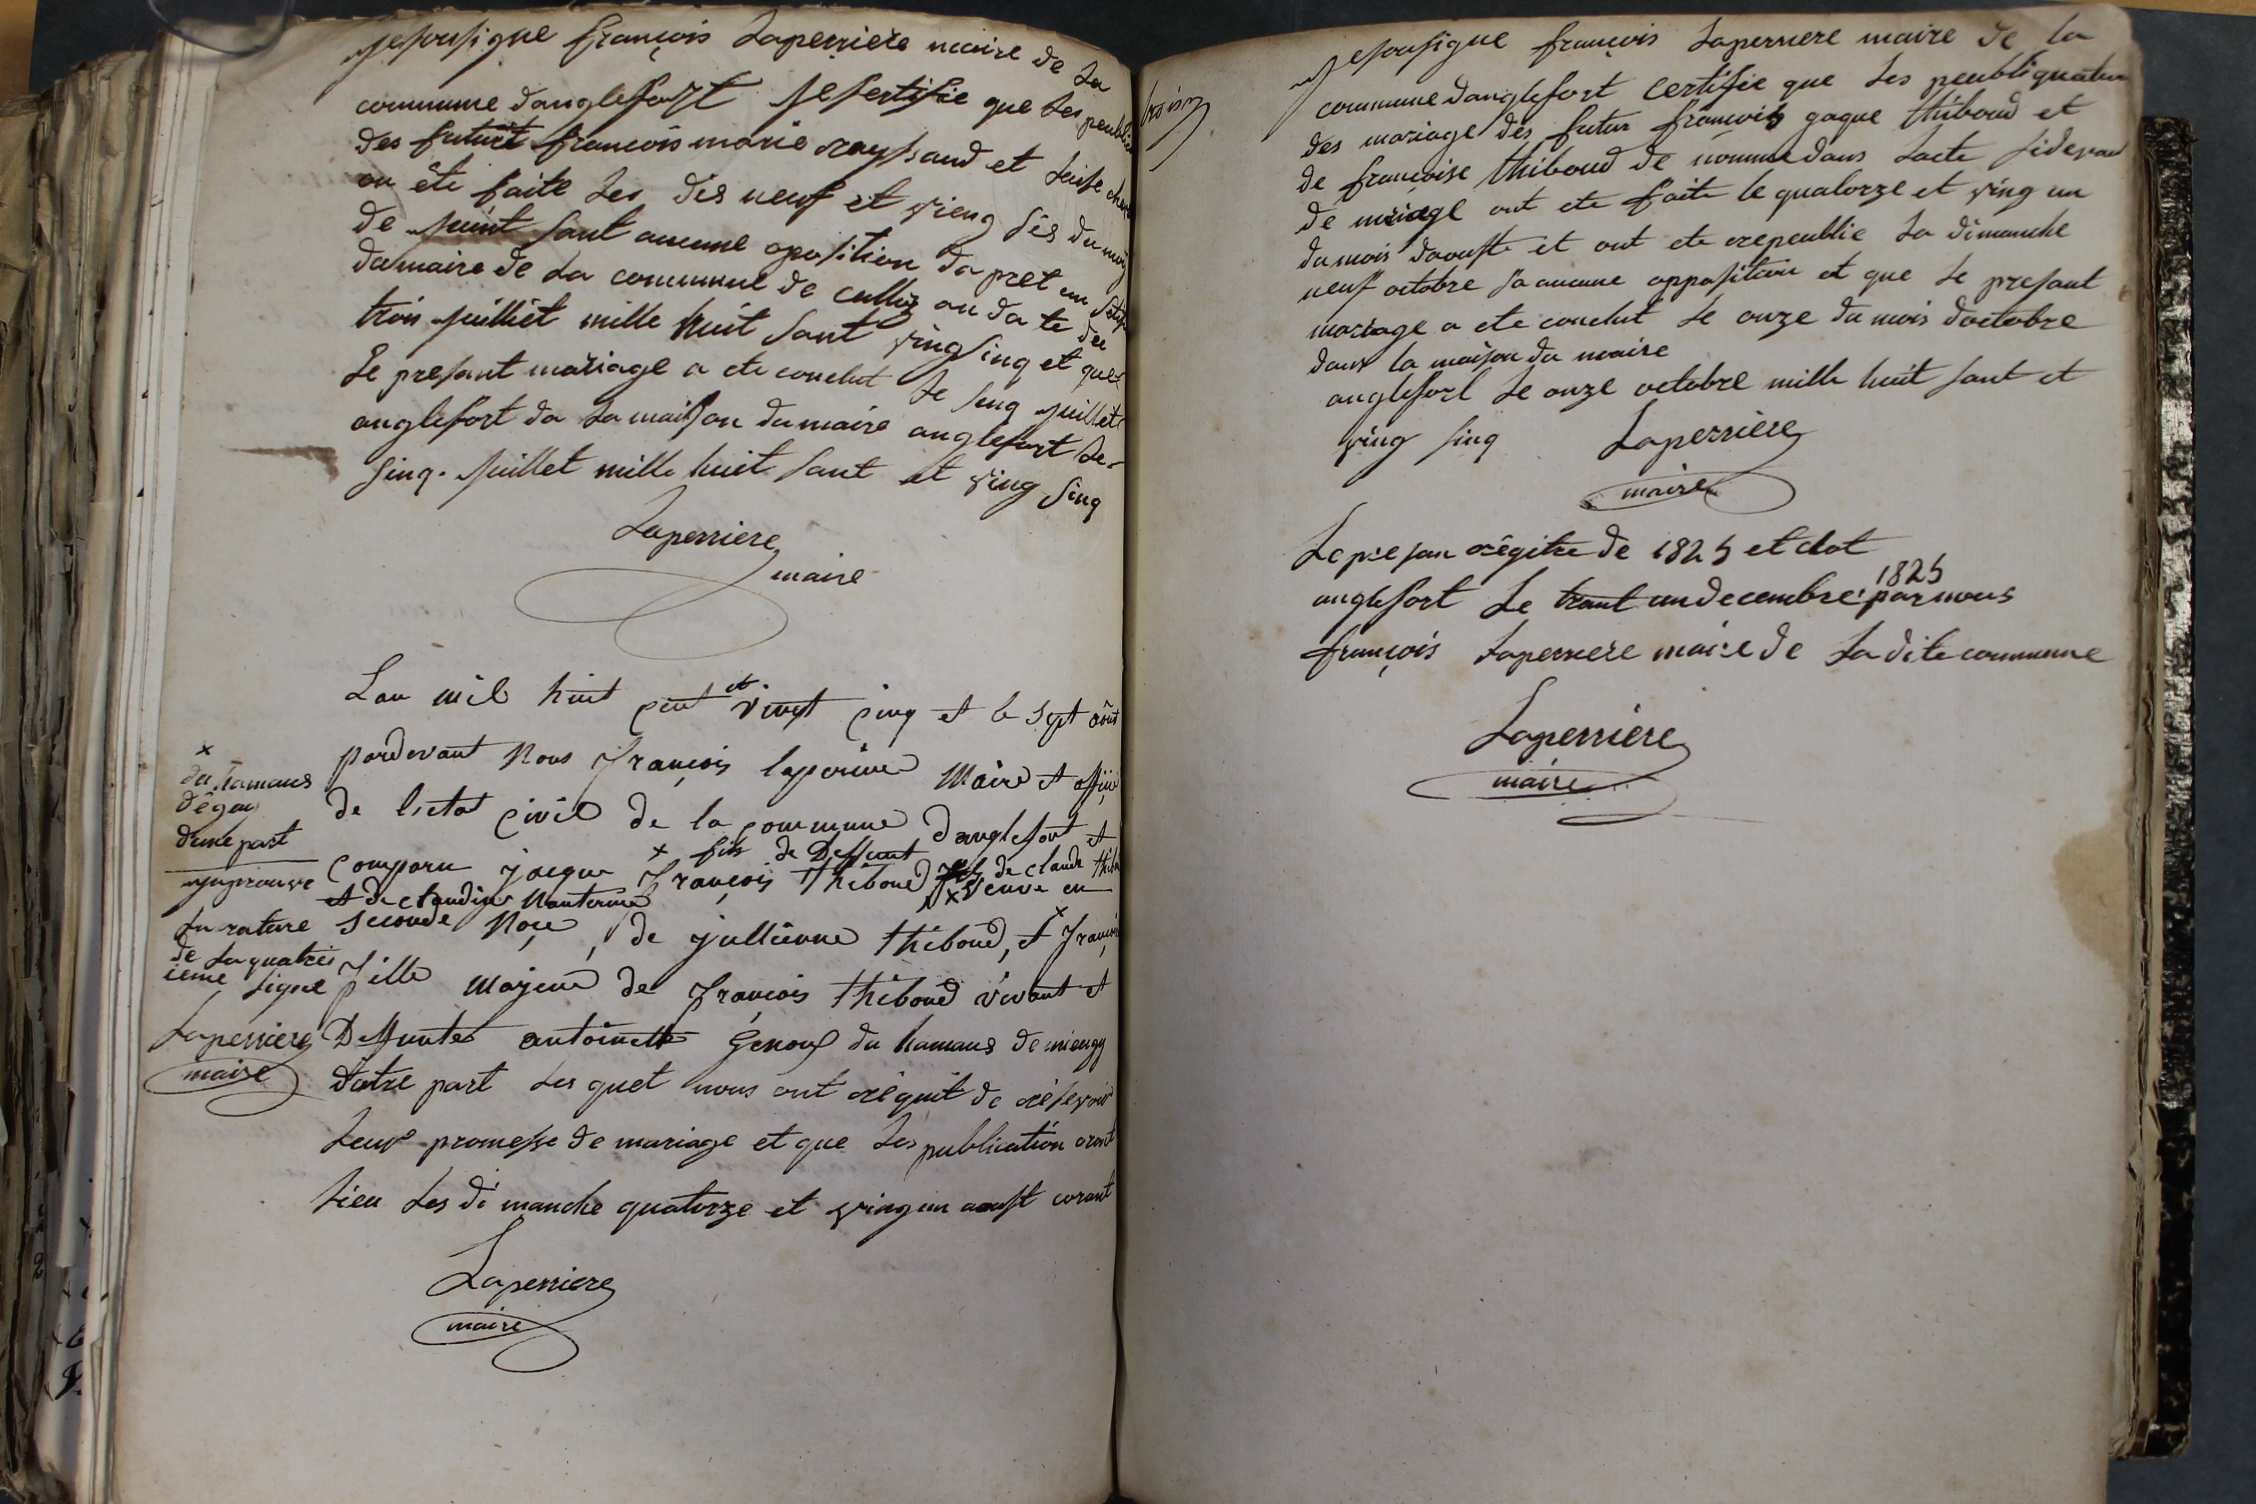 Je sousigne françois Laperriere maire de La
commune danglefort Je sertifie que Les
des futurt francois marie rayssaud et
on ête faite Les dis neuf et vieng sis du
de juint sant aucune oposition
du maire de La commune de culloz an date du
trois juilliet mille huit sant ving sinq et que
Le presant mariage a ete conclut Le sinq juillet
anglefort da La maisson du maire anglefort Le
sinq. Juillet mille huit sant et ving sinq
Laperriere
maire
Lan mil huit cent et vingt cinq et le sept août
pardevant Nous françois laperriere Maire et
de letat civil de la commune danglefort et
x fils de Deffunt
comparu jacque françois thiboud de claude
et de claudine x veuve en
seconde Noçe, de jullienne thiboud, et
fille majeure de françois thiboud vivant et
Deffunte antoinette Genoux du hamaus de
datre part Les quet nous ont réquit de résevoir
Leurs promesse de mariage et que Les publication oront
Lieu Les di manche quatorze et vingun aoust corant
Laperriere
maire
x
du hamaus
d'une part
japrouve
La rature
de La quatrie
ieme Ligne
Laperriere
maire
Je sousigne françois Laperriere maire de la
commune danglefort certifie que Les
des mariage des futur françois gaque thiboud et
de françoise thiboud de nomme dans Lacte sidevan
de mariage ont ete faite le quatorze et ving un
du mois daouste et ont ete repeublie La dimanche
neuf octobre sa aucune oppositoin et que Le presant
mariage a ete conclut Le onze du mois doctobre
dans la maison du maire
anglefort Le onze octobre mille huit sant et
ving sinq Laperriere
maire
Le presan régitre de 1825 et clot
anglefort Le trant un decembre 1825 par nous
françois Laperriere maire de La dite commune
Laperriere
maire